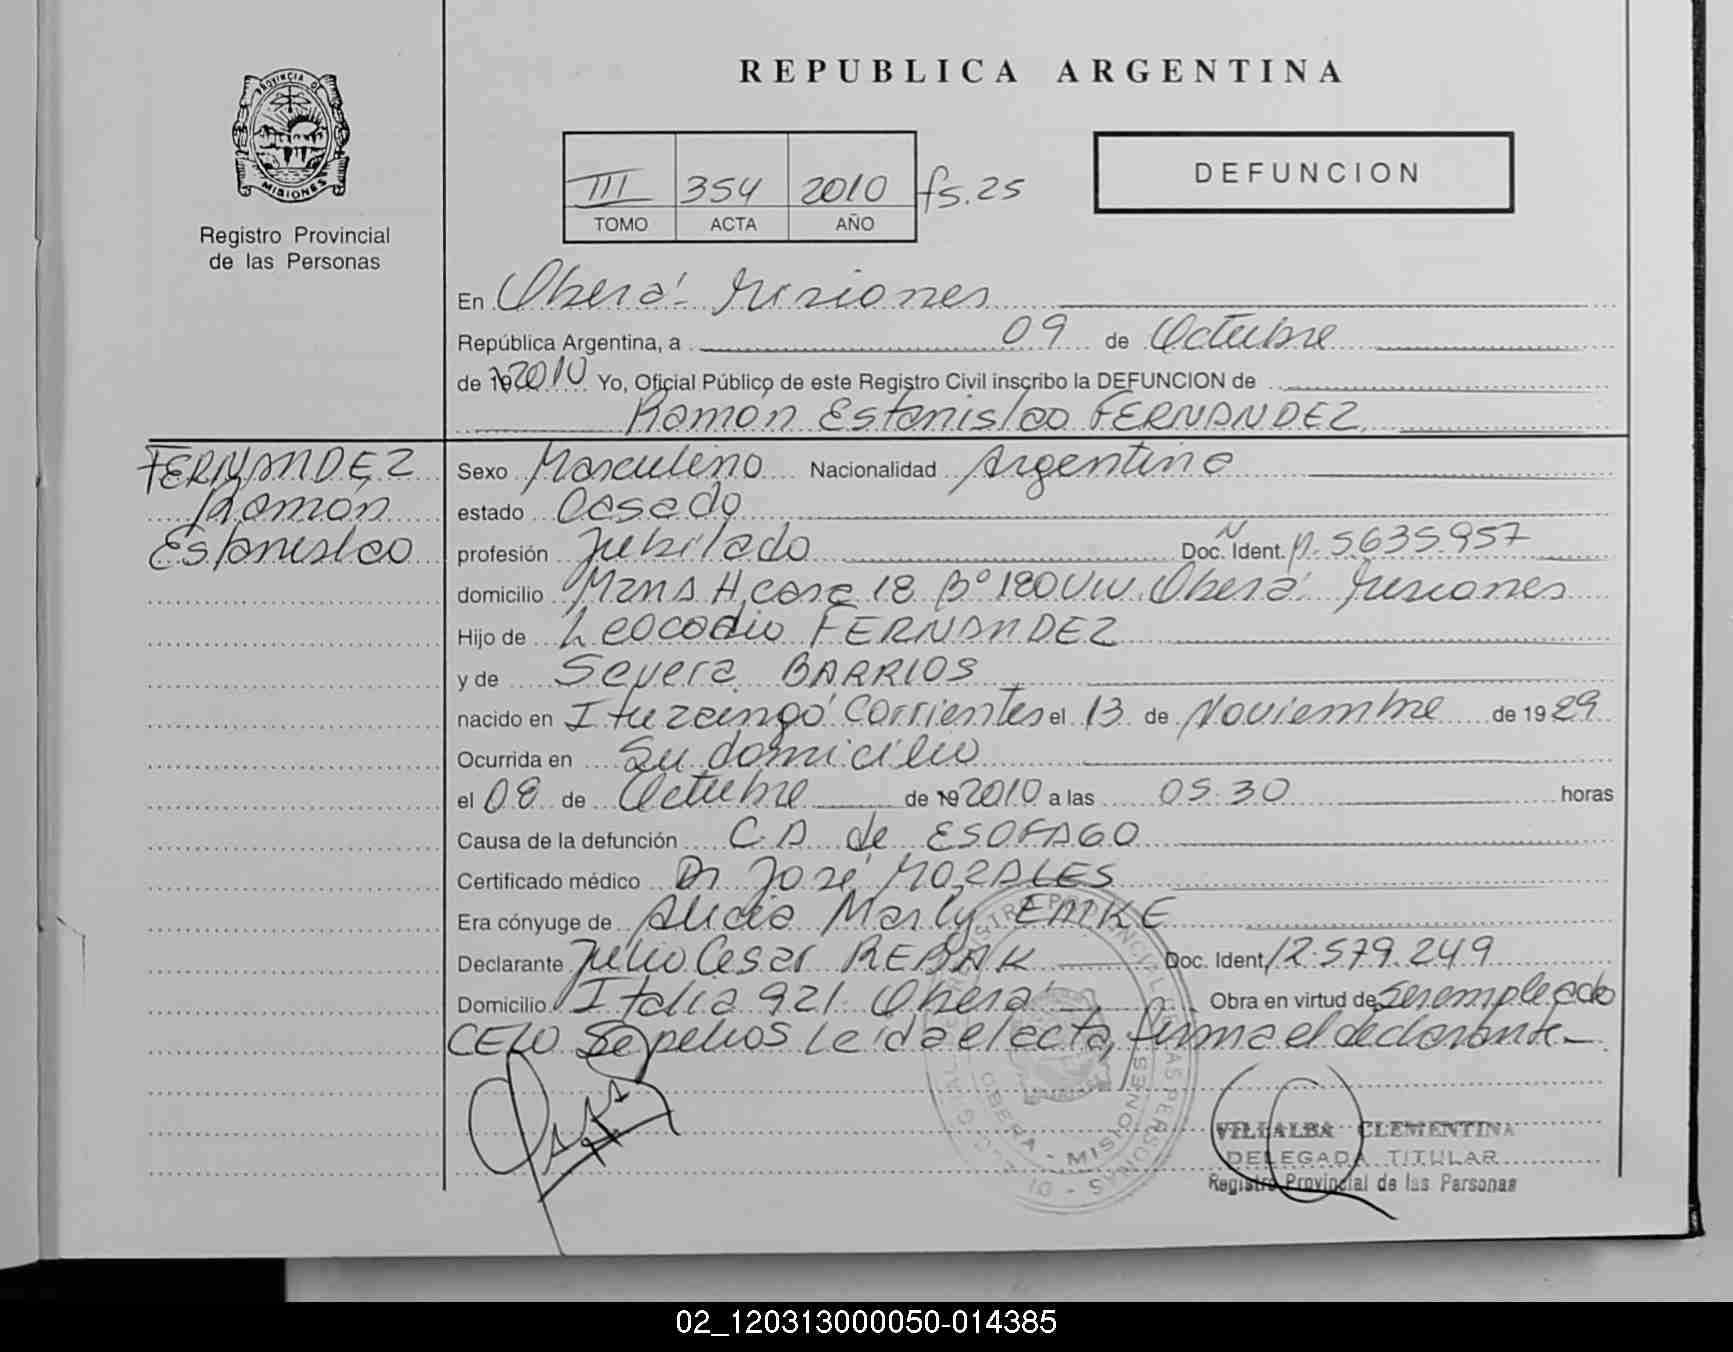 REPUBLICA ARGENTINA
PROVINCIA DE
MISIONES
Registro Provincial
de las Personas
III 354 2010 fs. 25
TOMO ACTA AÑO
DEFUNCION
En Oberá - Misiones
República Argentina, a 09 de Octubre
de 19 2010 Yo, Oficial Público de este Registro Civil inscribo la DEFUNCION de
Ramón Estanislao FERNANDEZ
FERNANDEZ
Ramón
Estanislao
Sexo Masculino Nacionalidad Argentina
estado Casado
profesión Jubilado Doc. Ident. Nº 5635.957
domicilio Mzna H, casa 18 Bº 180 Viv. Oberá Misiones
Hijo de Leocadio FERNANDEZ
y de Severa BARRIOS
nacido en Ituzaingó Corrientes el 13 de Noviembre de 1929
Ocurrida en Su domicilio
el 08 de Octubre de 19 2010 a las 05.30 horas
Causa de la defunción C.A de ESOFAGO
Certificado médico Dr José MORALES
Era cónyuge de Alicia Marly EMKE
Declarante Julio Cesar REBAK Doc. Ident. 12.579.249
Domicilio Italia 921. Oberá Obra en virtud de ser empleado
CELO Sepelios Leída el acta, firma el declarante.-
OBERA - MISIONES
VILLALBA CLEMENTINA
DELEGADA TITULAR
Registro Provincial de las Personas
02_120313000050-014385